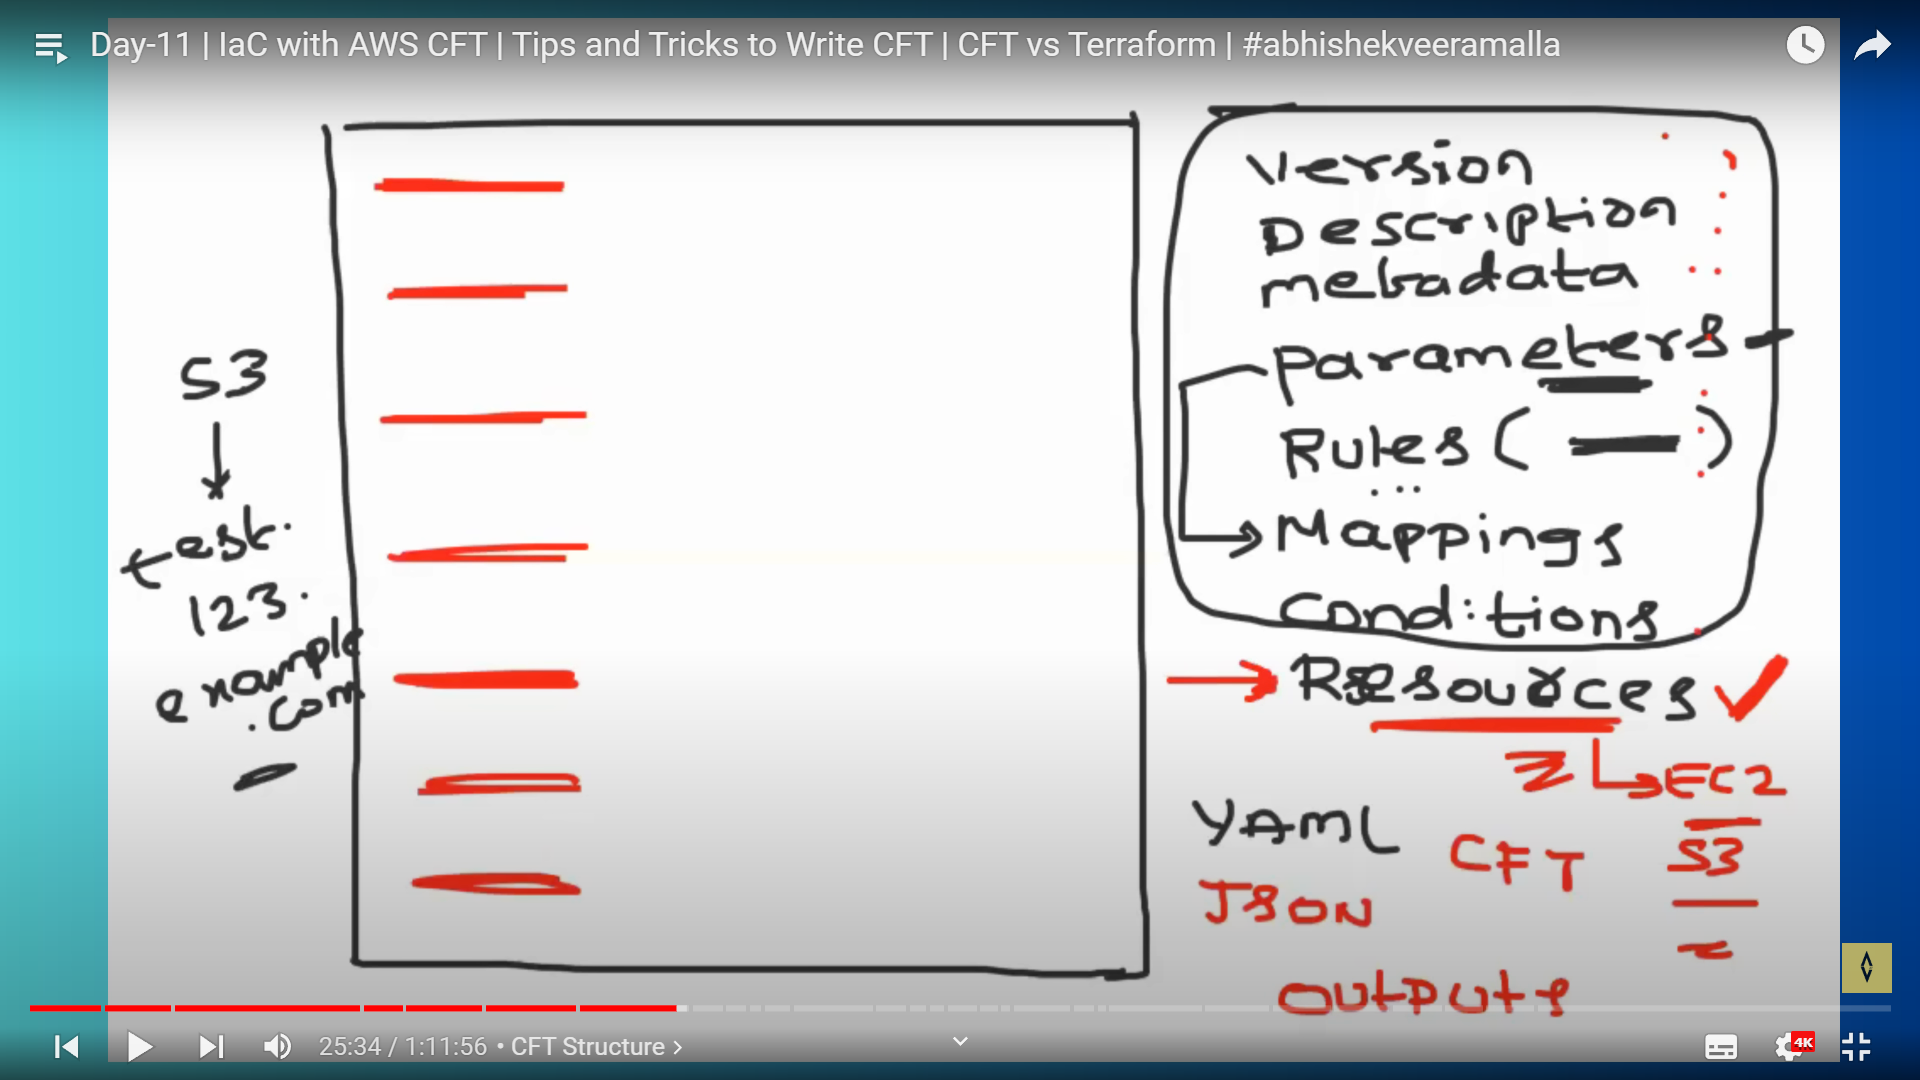 Day-11 | IaC with AWS CFT | Tips and Tricks to Write CFT | CFT vs Terraform | #abhishekveeramalla
Version
Description
metadata
Parameters
Rules ( )
Mappings
Conditions
Resources
EC2
S3
S3
est.
123.
example
.com
YAML
CFT
JSON
outputs
25:34 / 1:11:56 • CFT Structure >
4K